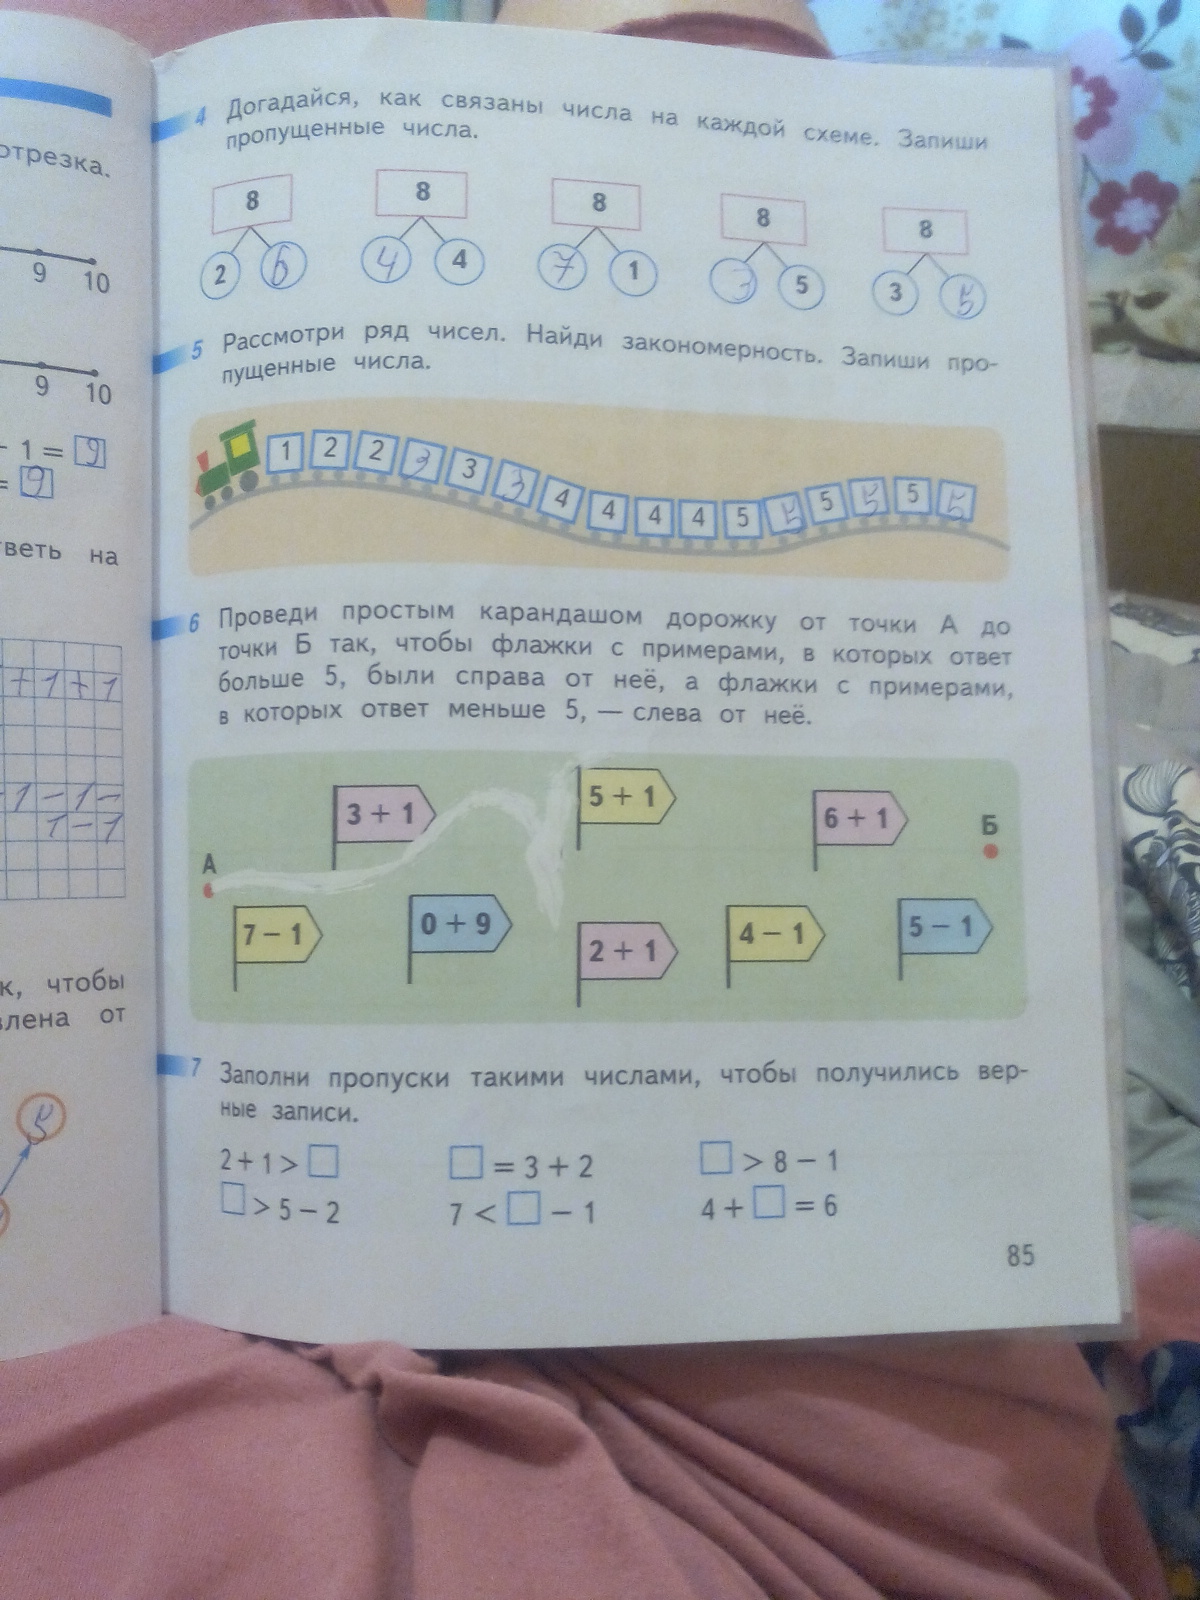 отрезка.
9 10
9 10
- 1 = 9
= 9
тветь на
+1+1
-1-1-
1-1
к, чтобы
влена от
5
4 Догадайся, как связаны числа на каждой схеме. Запиши
пропущенные числа.
8 8 8 8 8
2 6 4 4 7 1 3 5 3 5
5 Рассмотри ряд чисел. Найди закономерность. Запиши про-
пущенные числа.
1 2 2 3 3 3 4 4 4 4 5 5 5 5 5 5
6 Проведи простым карандашом дорожку от точки А до
точки Б так, чтобы флажки с примерами, в которых ответ
больше 5, были справа от неё, а флажки с примерами,
в которых ответ меньше 5, — слева от неё.
3 + 1 5 + 1 6 + 1 Б
А
7 – 1 0 + 9 2 + 1 4 – 1 5 – 1
7 Заполни пропуски такими числами, чтобы получились вер-
ные записи.
2 + 1 > □ □ = 3 + 2 □ > 8 – 1
□ > 5 – 2 7 < □ – 1 4 + □ = 6
85